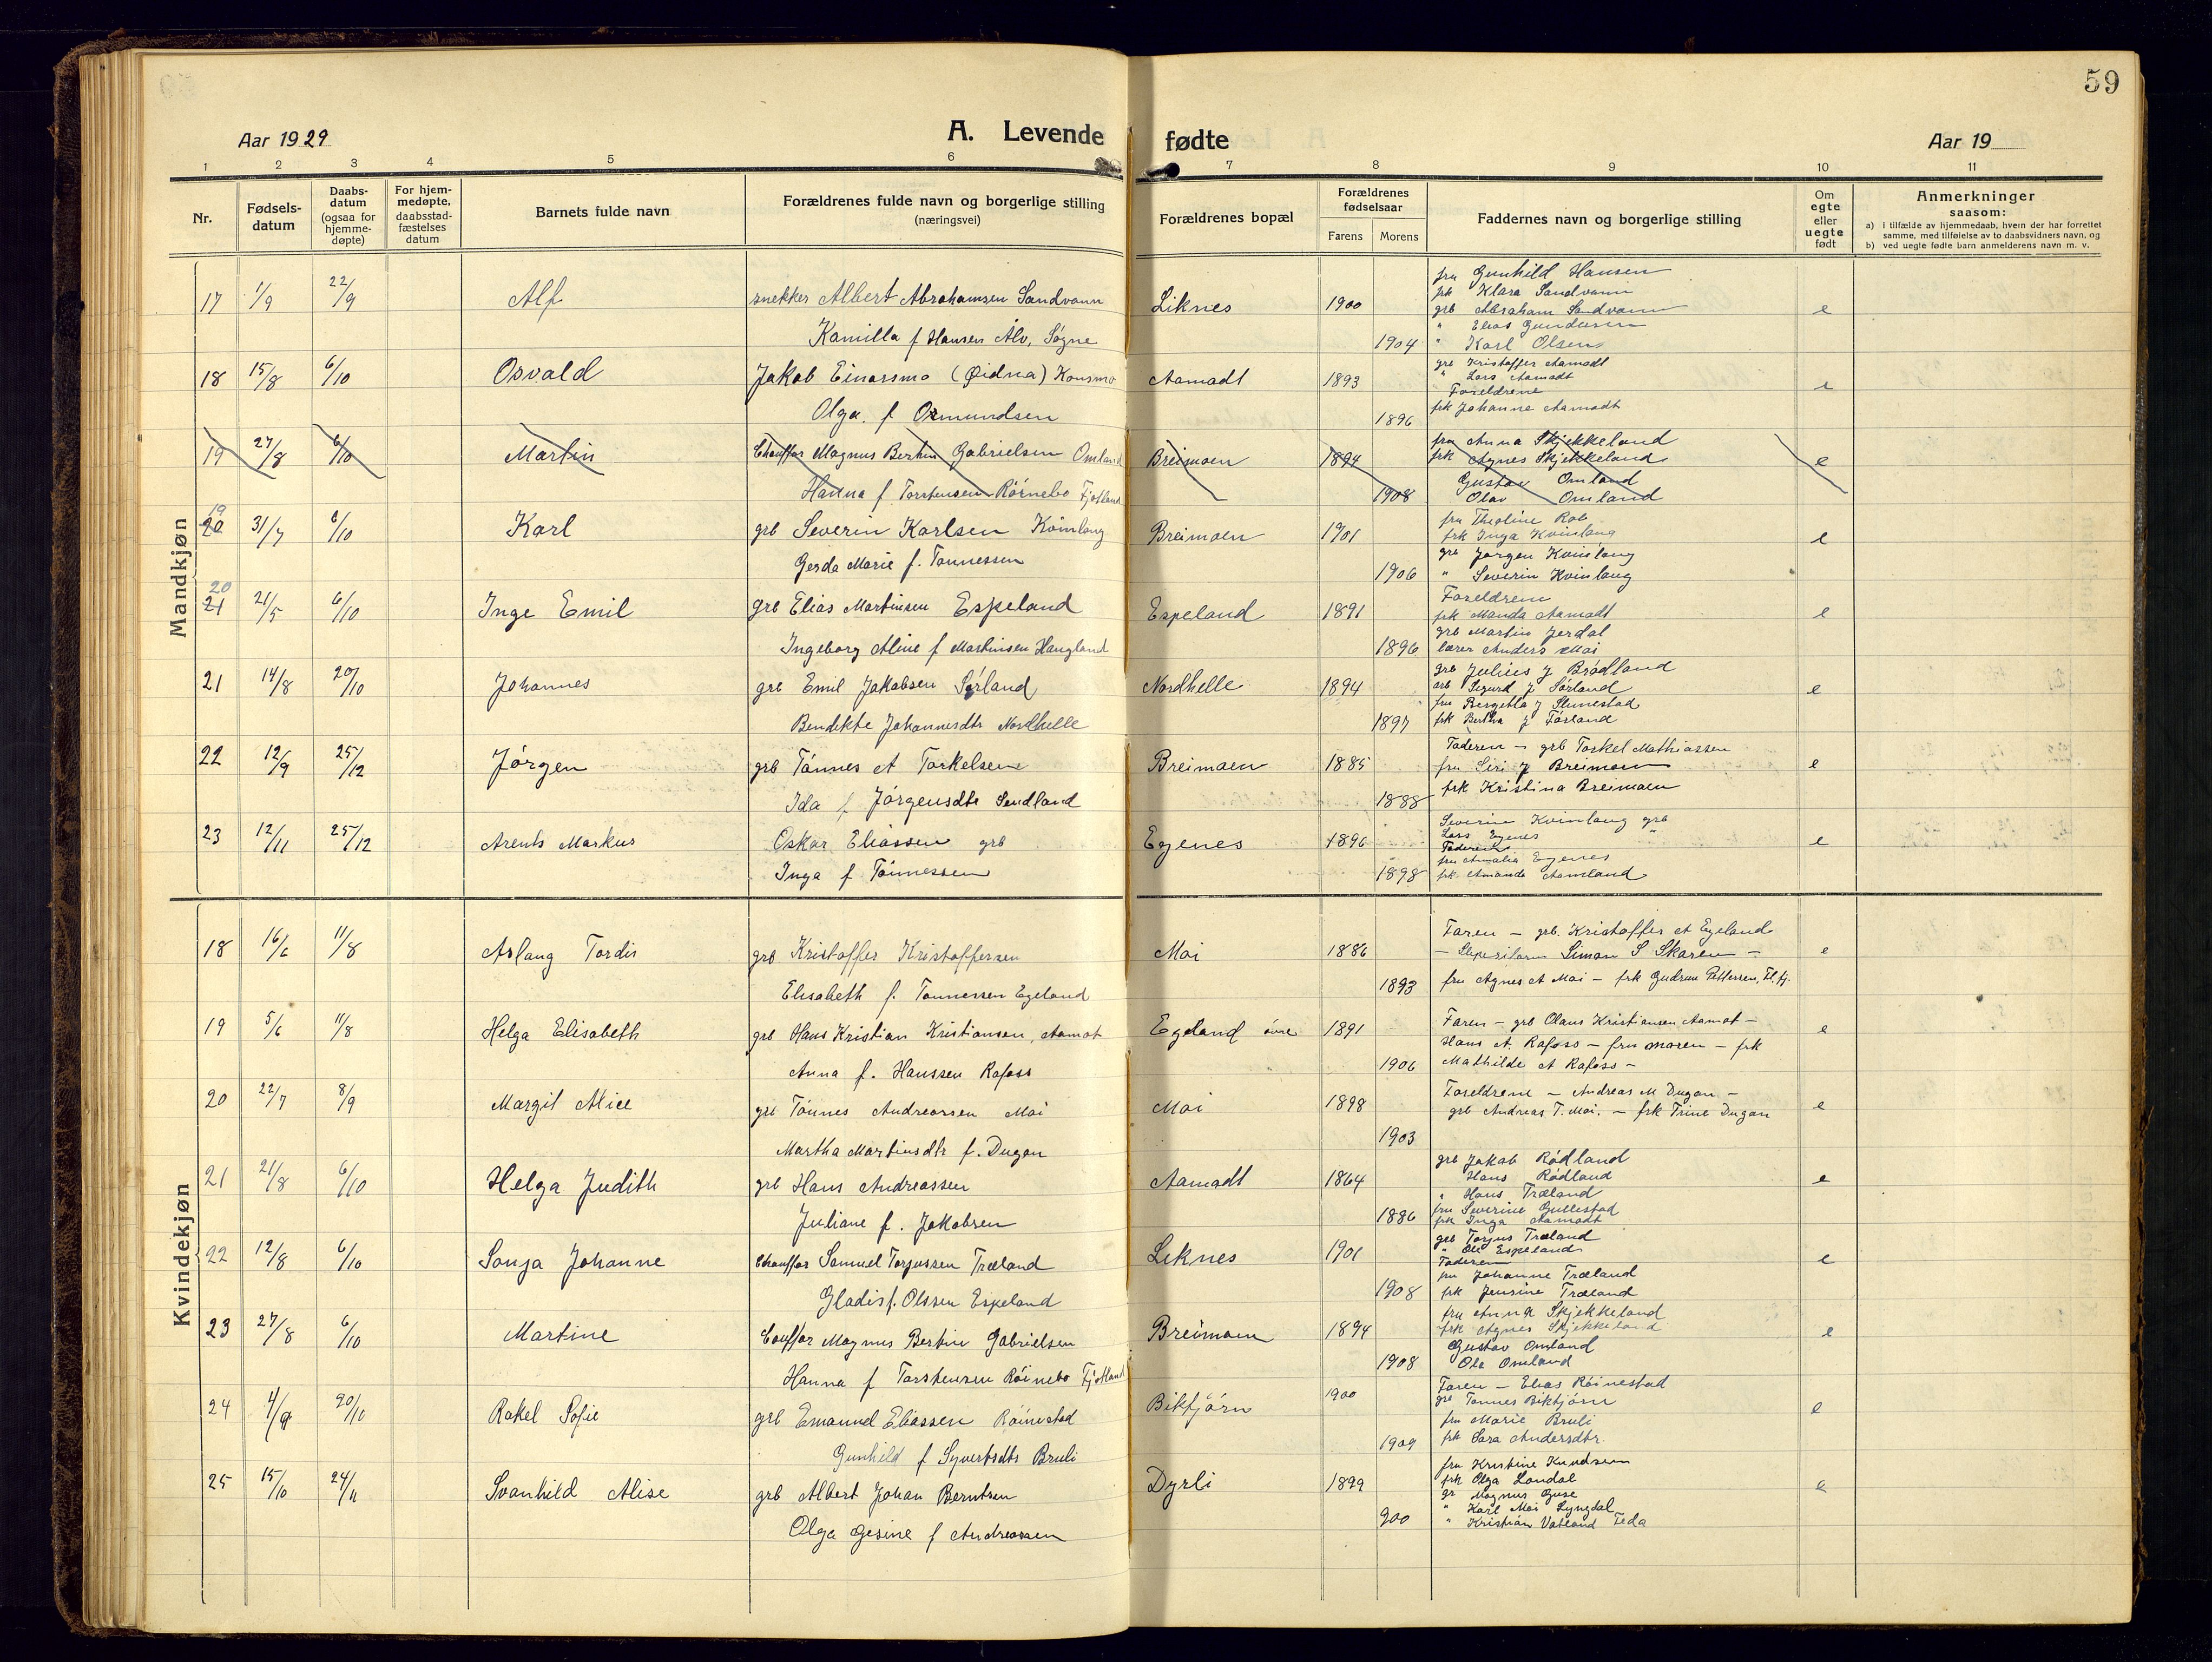 59
Aar 1929
A. Levende fødte
Aar 19
1 2 3 4 5 6 7 8 9 10 11
Nr.
Fødsels-
datum
Daabs-
datum
(ogsaa for
hjemme-
døpte)
For hjem-
medøpte,
daabsstad-
fæstelses
datum
Barnets fulde navn
Forældrenes fulde navn og borgerlige stilling
(næringsvei)
Forældrenes bopæl
Forældrenes
fødselsaar
Farens Morens
Faddernes navn og borgerlige stilling
Om
egte
eller
uegte
født
Anmerkninger
saasom:
a) i tilfælde av hjemmedaab, hvem der har forrettet
samme, med tilføielse av to daabsvidners navn, og
b) ved uegte fødte barn anmelderens navn m. v.
Mandkjøn
17 1/9 22/9 Alf
snekker Albert Abrahamsen Sandvann
Kamilla f Hansen Alv, Søgne
Liknes 1900 1904
fru Gunhild Hansen
frk Klara Sandvann
grb Abraham Sandvann
" Elias Gundersen
" Karl Olsen
e
18 15/8 6/10 Osvald
Jakob Einarsmo (Øidna) Konsmo
Olga f Osmundsen
Aamodt 1893 1896
grb Kristoffer Aamodt
" Lars Aamodt
Foreldrene
frk Johanne Aamodt
e
19 27/8 6/10 Martin
Chauffør Magnus Bertin Gabrielsen Omland
Hanna f Torstensen Rörnebo Fjotland
Breimoen 1894 1908
fru Anna Skjekkeland
frk Agnes Skjekkeland
Gustav Omland
Olav Omland
e
19
20 31/7 6/10 Karl
grb Severin Karlsen Kvinlaug
Gerda Marie f. Tønnessen
Breimoen 1901 1906
fru Theoline Rob
frk Inga Kvinlaug
grb Jørgen Kvinlaug
" Severin Kvinlaug
e
20
21 21/5 6/10 Inge Emil
grb Elias Martinsen Espeland
Ingeborg Aline f Martinsen Haugland
Espeland 1891 1896
Foreldrene
frk Manda Aamodt
grb Martin Jerdal
lærer Anders Moi
e
21 14/8 20/10 Johannes
grb Emil Jakobsen Sørland
Bendikte Johannesdtr Nordhelle
Nordhelle 1894 1897
grb Julius J Brødland
grb Sigurd J Sørland
fru Bergitta J Stunestad
frk Bertha J Førland
e
22 12/9 25/12 Jørgen
grb Tønnes A Torkelsen
Ida f Jørgensdtr Sendland
Breimoen 1885 1888
Faderen - grb Torkel Mathiassen
fru Siri J Breimoen
frk Kristina Breimoen
e
23 12/11 25/12 Arents Markus
Oskar Eliassen grb
Inga f Tønnessen
Egenes 1896 1898
Severine Kvinlaug grb
Lars Egenes "
Faderen
fru Amalia Egenes
frk Amanda Aamland
e
Kvindekjøn
18 16/6 11/8 Aslaug Tordis
grb Kristoffer Kristoffersen
Elisabeth f. Tønnessen Egeland
Moi 1886 1893
Faren - grb. Kristoffer A Egeland
- Simon S Skaren -
fru Agnes A Moi - frk Gudrun Pettersen, Fl.fj.
e
19 5/6 11/8 Helga Elisabeth
grb Hans Kristian Kristiansen, Aamot
Anna f. Hanssen Rafoss
Egeland øvre 1891 1906
Faren - grb Olaus Kristiansen Aamot -
Hans A. Rafoss - fru Maren - frk
Mathilde A Rafoss -
e
20 22/7 8/9 Margit Alice
grb Tønnes Andreassen Moi
Martha Martinsdtr f. Dugan
Moi 1898 1903
Foreldrene - Andreas M Dugan -
grb Andreas T. Moi. - frk Trine Dugan
e
21 21/8 6/10 Helga Judith
grb Hans Andreassen
Juliane f. Jakobsen
Aamodt 1864 1886
grb Jakob Rødland
" Hans Rødland
" Hans Træland
fru Severine Gullestad
frk Inga Aamodt
e
22 12/8 6/10 Sonja Johanne
Chauffør Samuel Torjussen Træland
Gladis f. Olssen Espeland
Liknes 1901 1908
grb Torjus Træland
" Ole Espeland
Faderen
fru Johanne Træland
frk Jensine Træland
e
23 27/8 6/10 Martine
Chauffør Magnus Bertin Gabrielsen
Hanna f Torstensen Röinebo Fjotland
Breimoen 1894 1908
fru Anna Skjekkeland
frk Agnes Skjekkeland
Gustav Omland
Ola Omland
e
24 4/9 20/10 Rakel Sofie
grb Emanuel Eliassen Röinestad
Gunhild f Syvertsdtr Bruli
Bikfjörn 1900 1909
Faren - Elias Röinestad
grb Tønnes Bikfjörn
fru Marie Bruli
frk Sara Andersdtr.
e
25 15/10 24/11 Svanhild Alise
grb Albert Johan Berntsen
Olga Gesine f Andreassen
Dyrli 1899 900
fru Kristine Knudsen
frk Olga Londal
gr Magnus Guse
" Karl Moi Lyngdal
" Kristian Vatland Feda
e